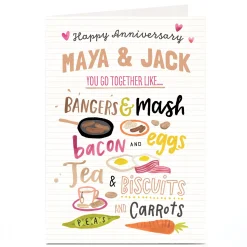 Happy Anniversary
MAYA & JACK
YOU GO TOGETHER LIKE...
BANGERS & MASH
bacon AND eggs
Tea & BISCUITS
PEAS AND CARROTS